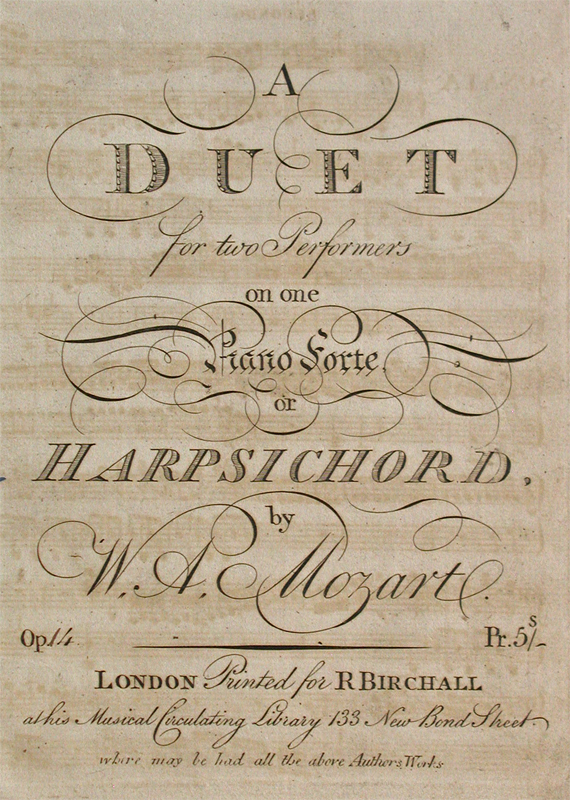 A
DUET
for two Performers
on one
Piano Forte,
or
HARPSICHORD,
by
W. A. Mozart.
Op. 14. Pr. 5s/-
LONDON Printed for R BIRCHALL
at his Musical Circulating Library 133 New Bond Street.
where may be had all the above Authors Works